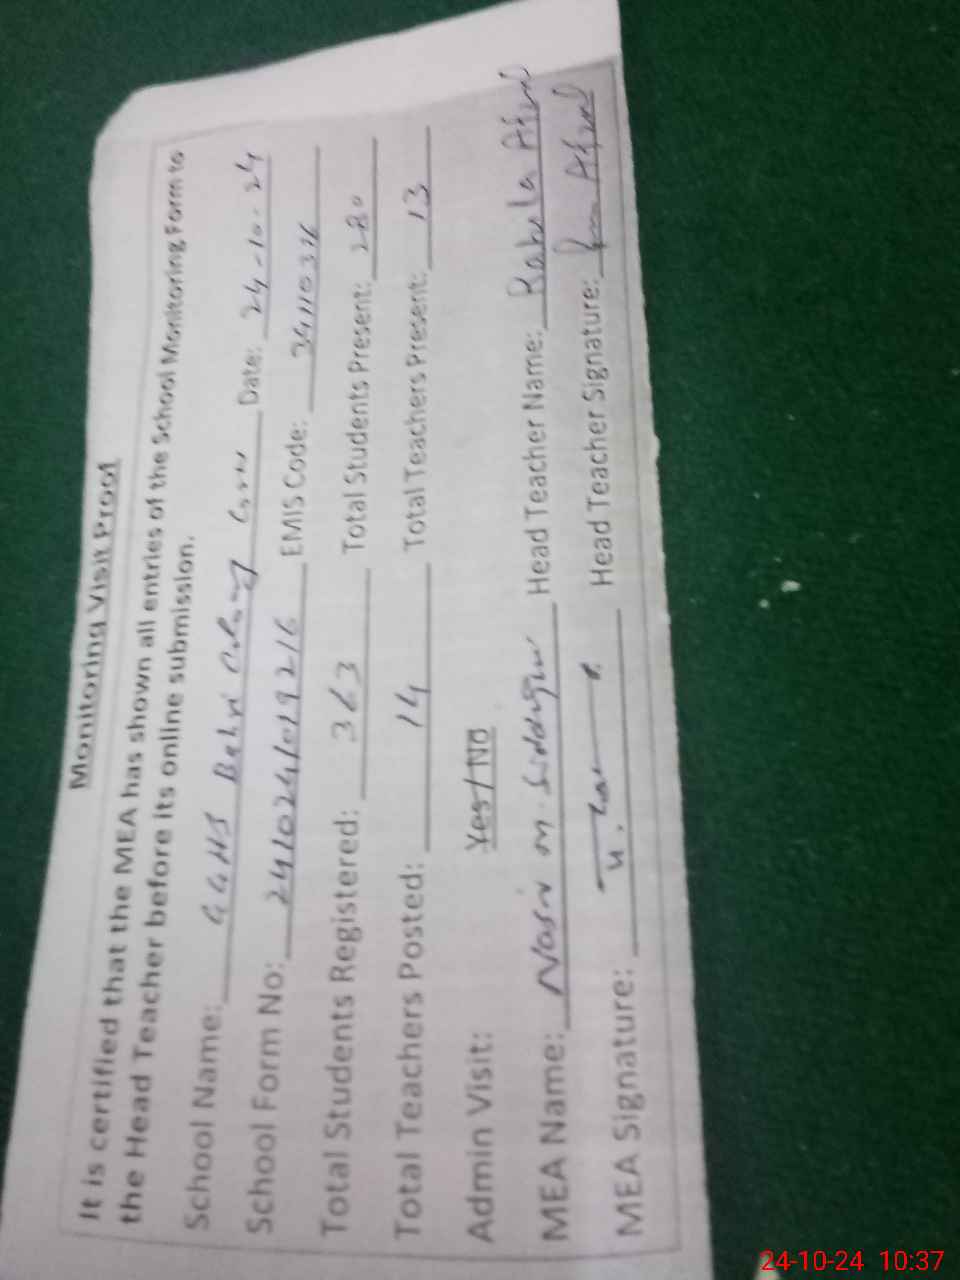 Monitoring Visit Proof
It is certified that the MEA has shown all entries of the School Monitoring Form to
the Head Teacher before its online submission.
School Name: GGHS Bahri Colony Date: 24-10-24
School Form No: 2410241019216 EMIS Code:
Total Students Registered: 363 Total Students Present: 280
Total Teachers Posted: 14 Total Teachers Present: 13
Admin Visit: Yes/No
MEA Name: Nasir M. Siddiqui Head Teacher Name: Rahila Afzal
MEA Signature: Head Teacher Signature: Afzal
24-10-24 10:37